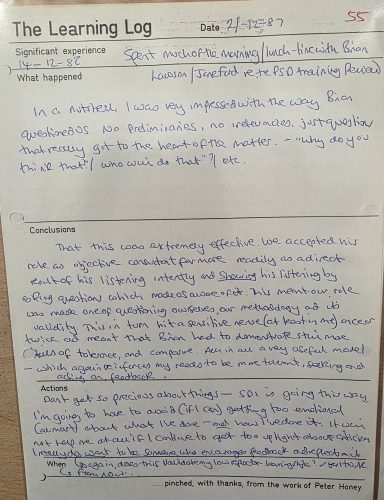 The Learning Log
Date 21-12-87
55
Significant experience
14-12-86
Spent much of the morning/lunch-time with Brian
What happened
Lawson / Jane Ford re the PSD training Period
In a nutshell, I was very impressed with the way Brian
questioned us. No preliminaries, no irrelevancies, just questions
that really got to the heart of the matter. - "why do you
think that"/ who will do that"?/ etc.
Conclusions
That this was extremely effective. We accepted his
role as objective consultant far more readily as a direct
result of his listening intently and showing his listening by
asking questions which made us aware of it. This meant our role
was made one of questioning ourselves, our methodology and its
validity. This in turn hit a sensitive nerve (at least in me) once or
twice and meant that Brian had to demonstrate still more
skills of tolerance, and compare. All in all a very useful model
- which again reinforces my needs to be more tolerant, seeking and
acting on feedback.
Actions
Don't get so precious about things - SDI is going this way,
I'm going to have to avoid (if I can) getting too emotional
(almost) about what I've done - and how I've done it. It will
not help me at all if I continue to get too uptight about criticism
I really do want to be someone who encourages feedback and reflection
When
Go again, does this validate my low reflector learning style? -
from now...
....pinched, with thanks, from the work of Peter Honey